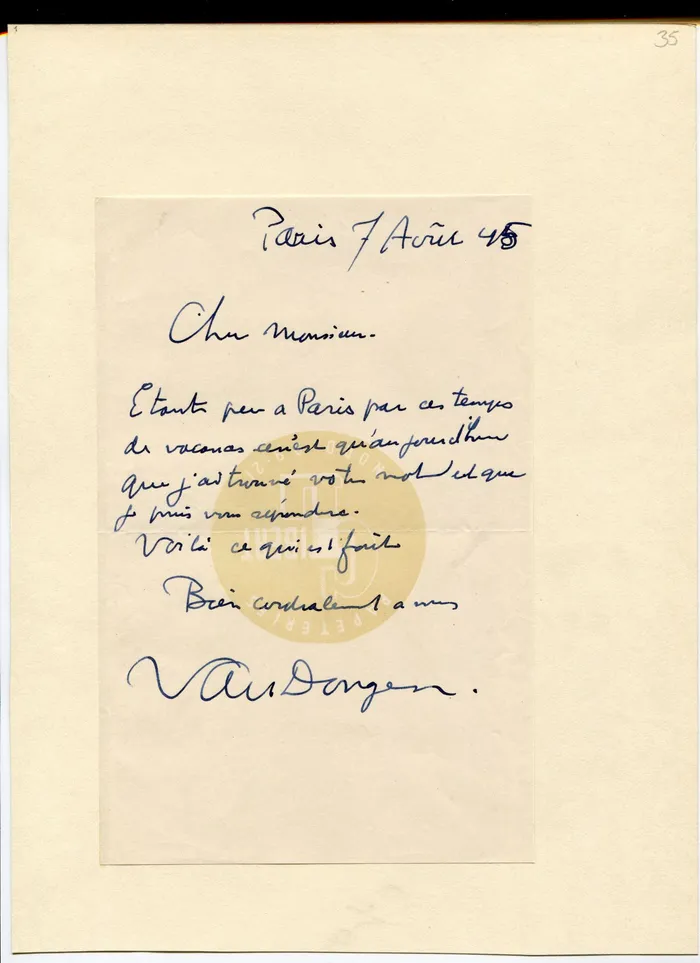 35
Paris 7 Août 45
Cher Monsieur.
Etant peu a Paris par ces temps
de vacances ce n'est qu'aujourd'hui
que j'ai trouvé votre mot et que
je puis vous repondre.
Voilà ce qui est fait
Bien cordialement a vous
Van Dongen.